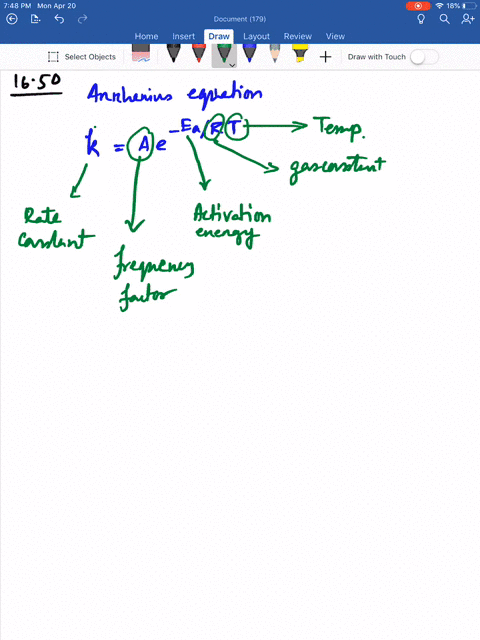 7:48 PM Mon Apr 20
18%
Document (179)
Home Insert Draw Layout Review View
Select Objects
Draw with Touch
16.50 Arrhenius equation
k = A e -Ea/RT
Temp.
gas constant
Rate constant
Activation energy
frequency factor